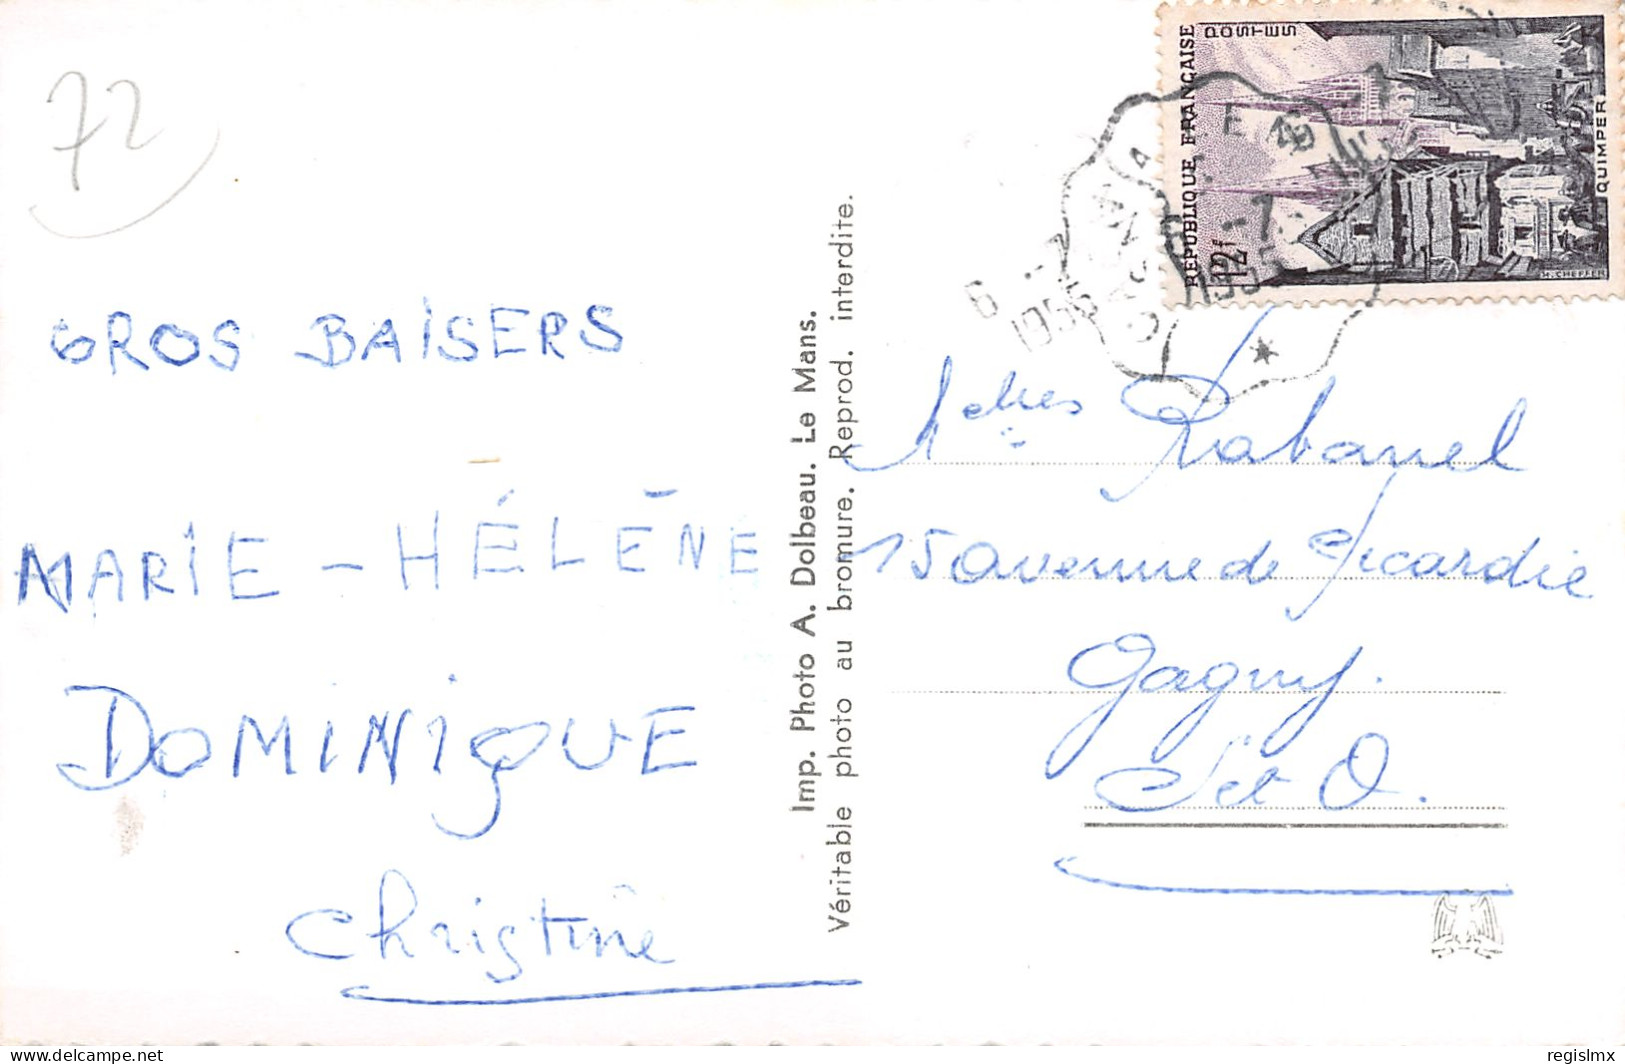 72
GROS BAISERS
MARIE - HÉLÈNE
DOMINIQUE
Christine
Imp. Photo A. Dolbeau. Le Mans.
Véritable photo au bromure. Reprod. interdite.
RÉPUBLIQUE FRANÇAISE
POSTES
12f
QUIMPER
H. CHEFFER
6 -7
1955
6 -7
1955
Rabanel
15 avenue de Picardie
Gagny.
S et O.
delcampe.net
regislmx